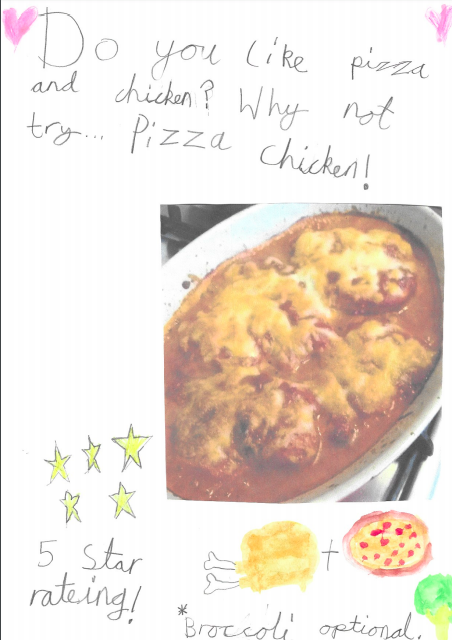 Do you like pizza
and chicken? Why not
try... Pizza
chicken!
5 Star
rateing!
*Broccoli optional.